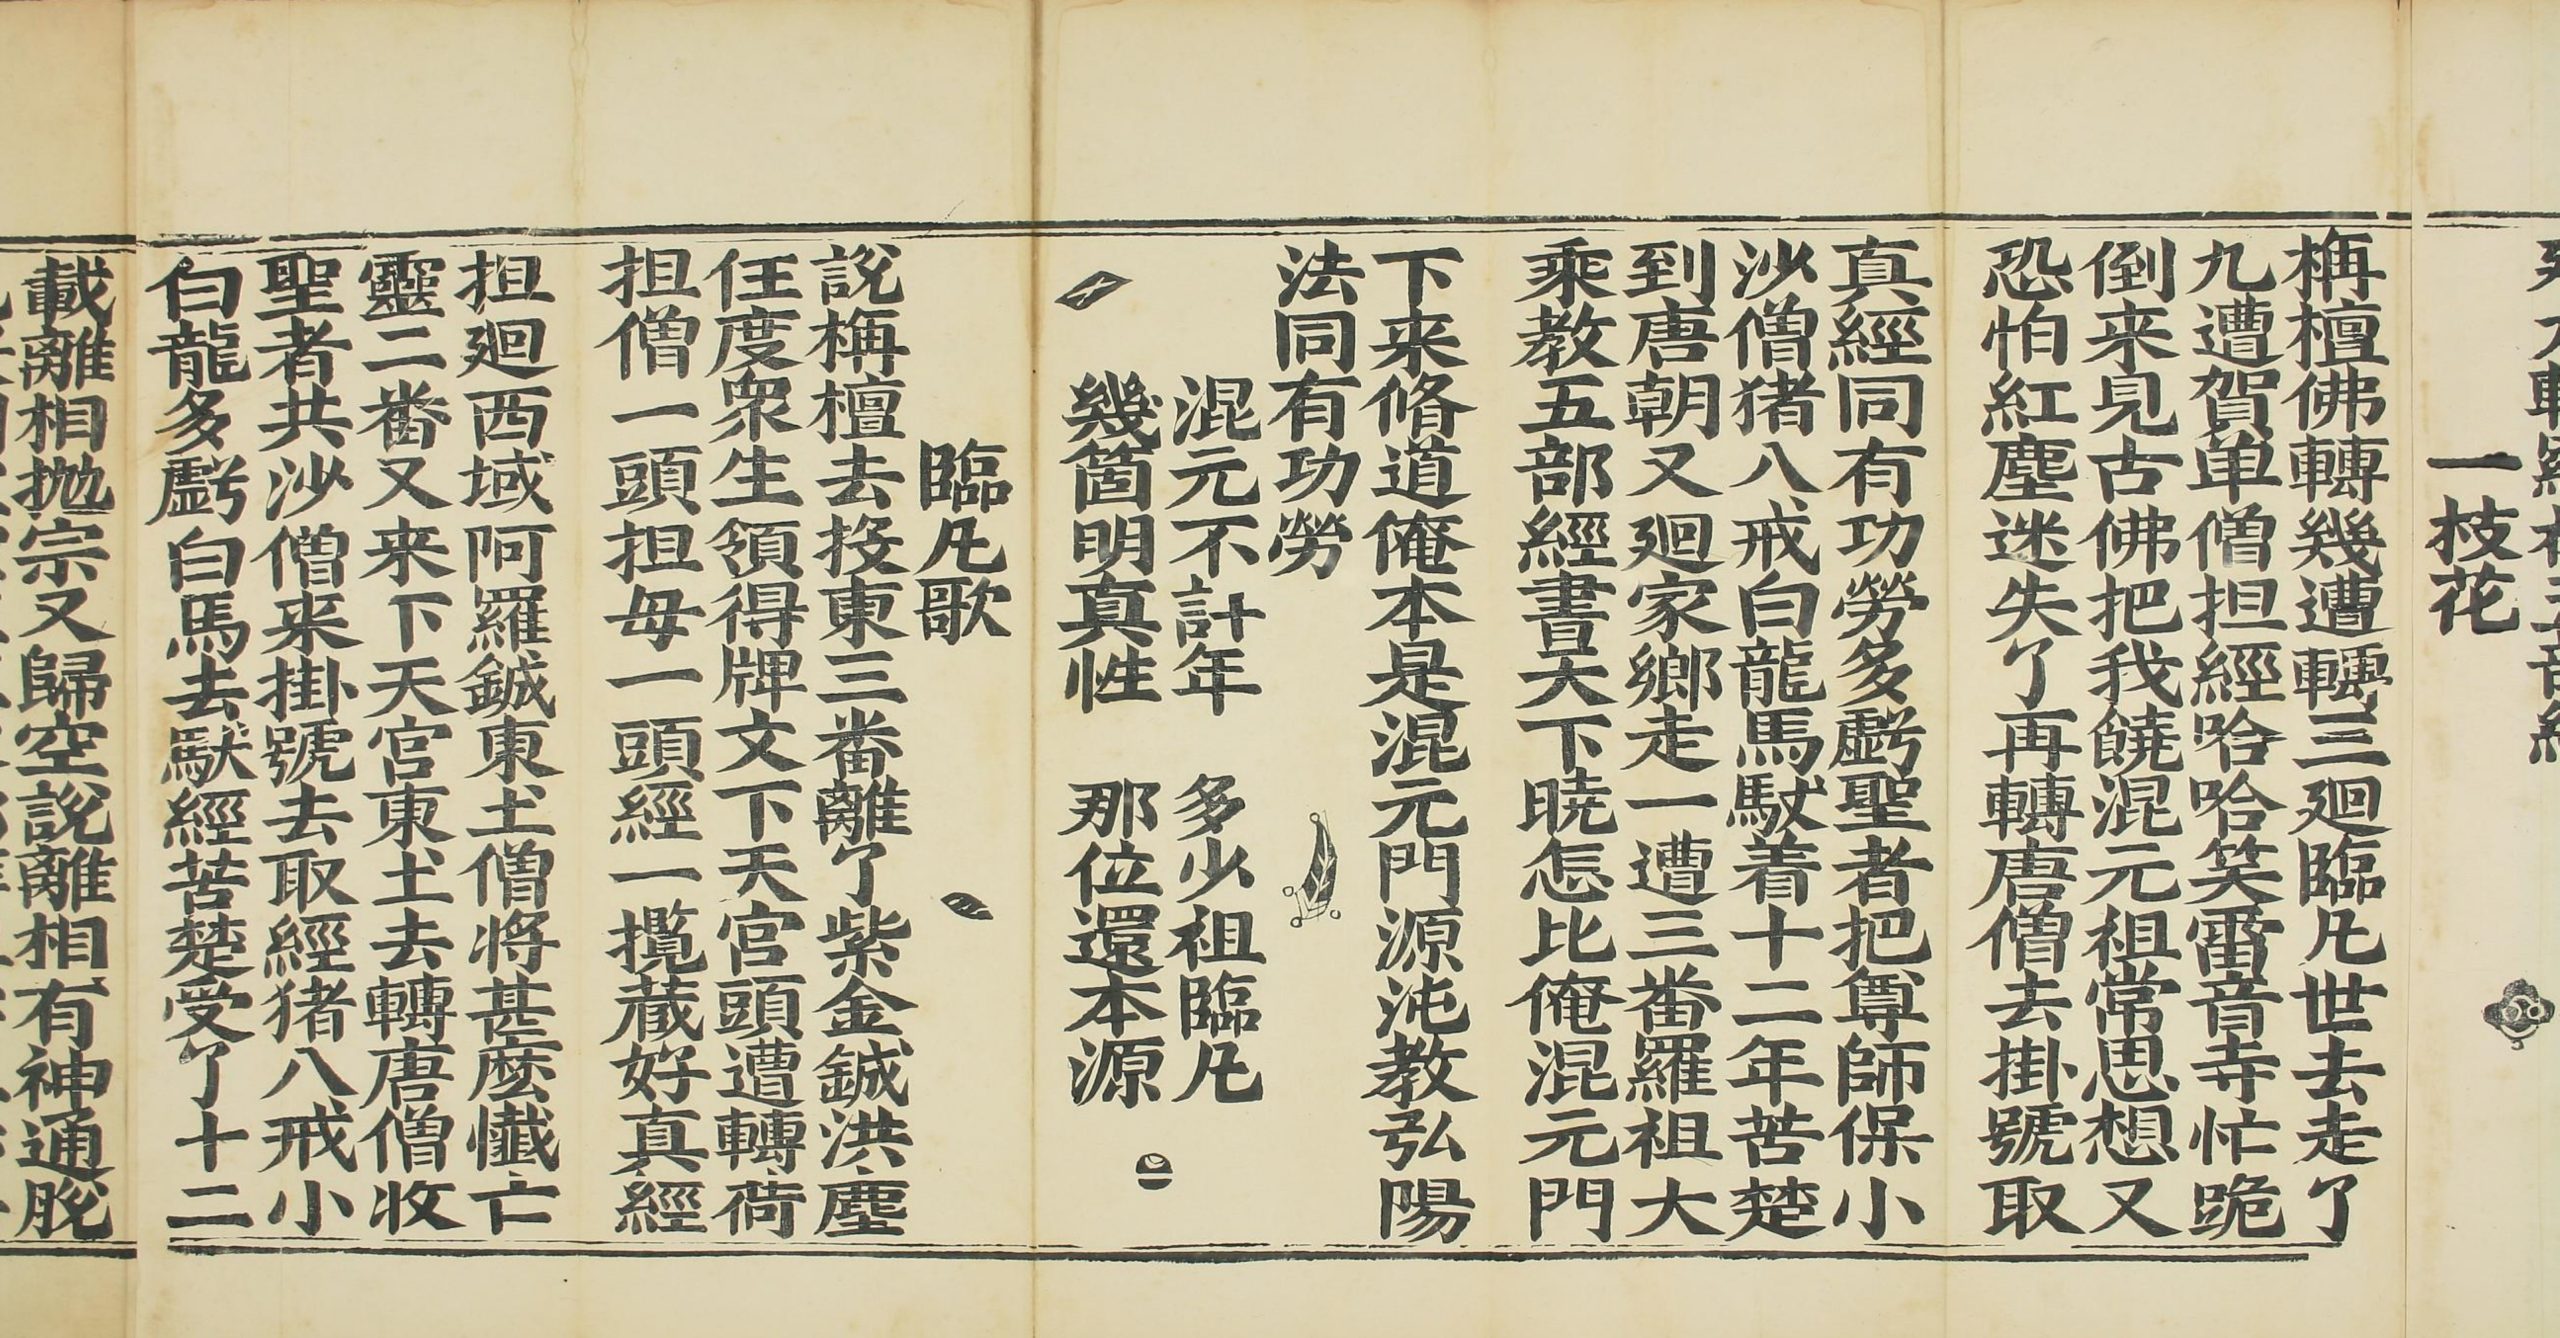 一枝花
栴檀佛轉幾遭轉三廻臨凡世去走了
九遭賀单僧担經哈哈笑雷音寺忙跪
倒来見古佛把我饒混元祖常思想又
恐怕紅塵迷失了再轉唐僧去掛號取
真經同有功勞多虧聖者把尊師保小
沙僧猪八戒白龍馬馱着十二年苦楚
到唐朝又廻家鄉走一遭三番羅祖大
乘教五部經書天下暁怎比俺混元門
下来脩道俺本是混元門源沌教弘陽
法同有功勞
混元不計年　多少祖臨凡
幾箇明真性　那位還本源
臨凡歌
說栴檀去投東三番離了紫金鉞洪塵
任度衆生領得牌文下天宫頭遭轉荷
担僧一頭担毋一頭經一攬蔵好真經
担廻西域阿羅鉞東土僧将甚麽懺亡
靈二番又来下天宫東土去轉唐僧收
聖者共沙僧来掛號去取經猪八戒小
白龍多虧白馬去馱經苦楚受了十二
載離相抛宗又歸空說離相有神通脫